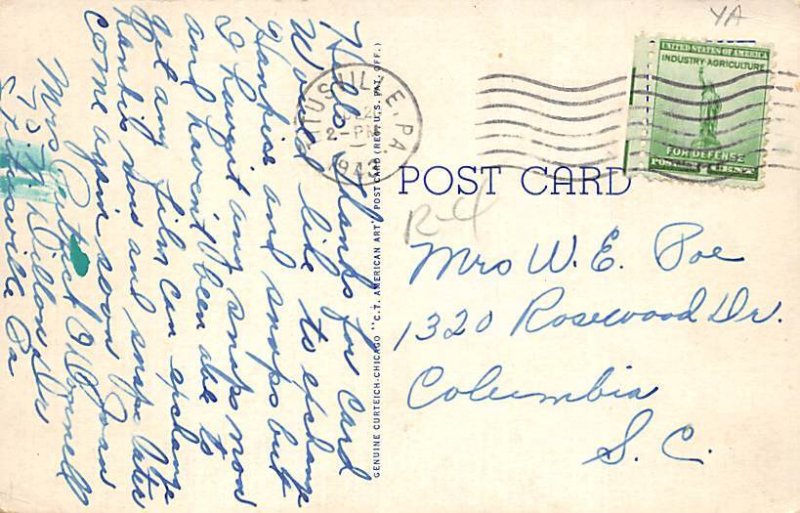 Hello, Thanks for card
Would like to exchange
Hankies and snaps but
I havn't any snaps now
and haven't been able to
get any film. Can exchange
Hankie now and snaps later
come again soon Joan
Mrs O'Donnell
Dr
Titusville Pa
GENUINE CURTEICH-CHICAGO "C.T. AMERICAN ART" POST CARD (REG. U.S. PAT. OFF.)
TITUSVILLE, PA.
2-PM
YA
UNITED STATES OF AMERICA
INDUSTRY AGRICULTURE
FOR DEFENSE
POSTAGE 1 CENT
POST CARD
R-4
Mrs W. E. Poe
1320 Rosewood Dr.
Columbia
S. C.